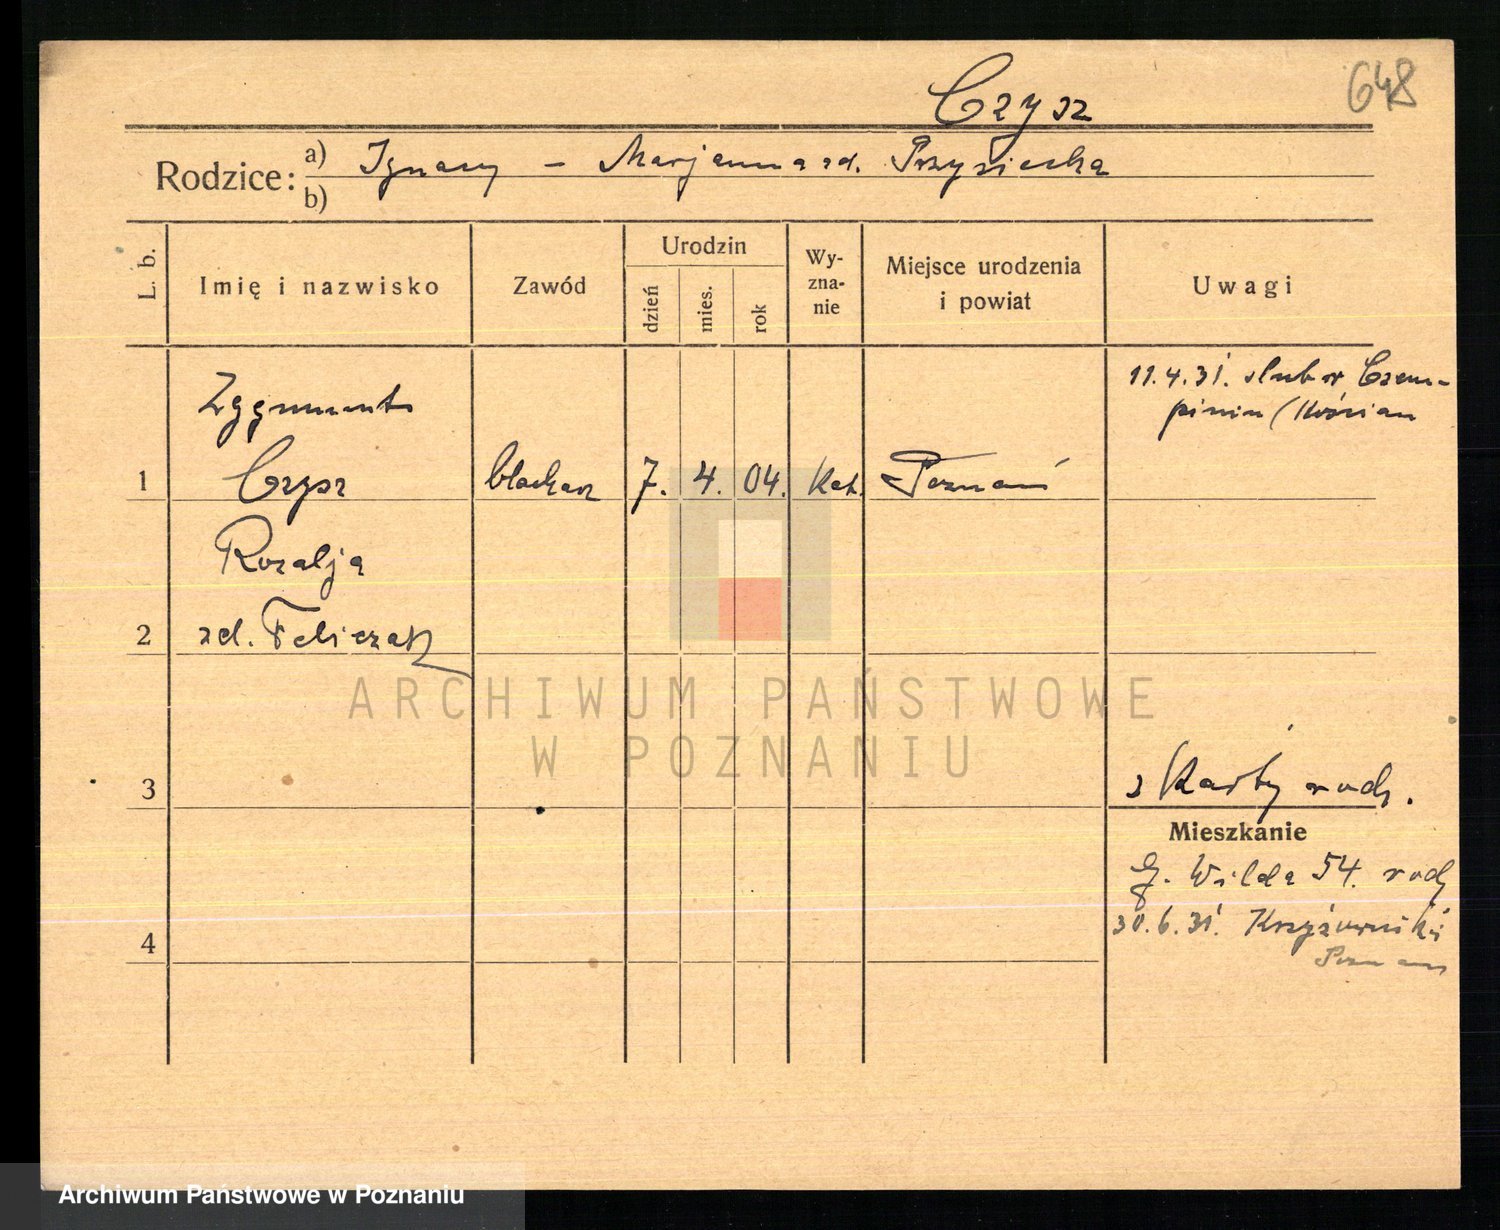 Czysz
648
Rodzice: a) Ignacy – Marjanna zd. Przysiecka
b)
L. b.
Imię i nazwisko
Zawód
Urodzin
dzień
mies.
rok
Wy-
zna-
nie
Miejsce urodzenia
i powiat
Uwagi
11.4.31. slub w Czem-
piniu (Kościan
Zygmunt
1 Czysz blacharz 7. 4. 04. Kat. Poznań
Rozalja
2 zd. Feliczak
ARCHIWUM PAŃSTWOWE
W POZNANIU
3
z Karty rodz.
Mieszkanie
G. Wilda 54. rodz
30.6.31. Krzyżowniki
Poznań
4
Archiwum Państwowe w Poznaniu